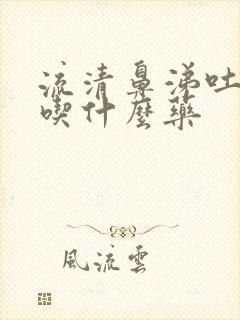 流清鼻涕吐
喫什麼藥
風流雲